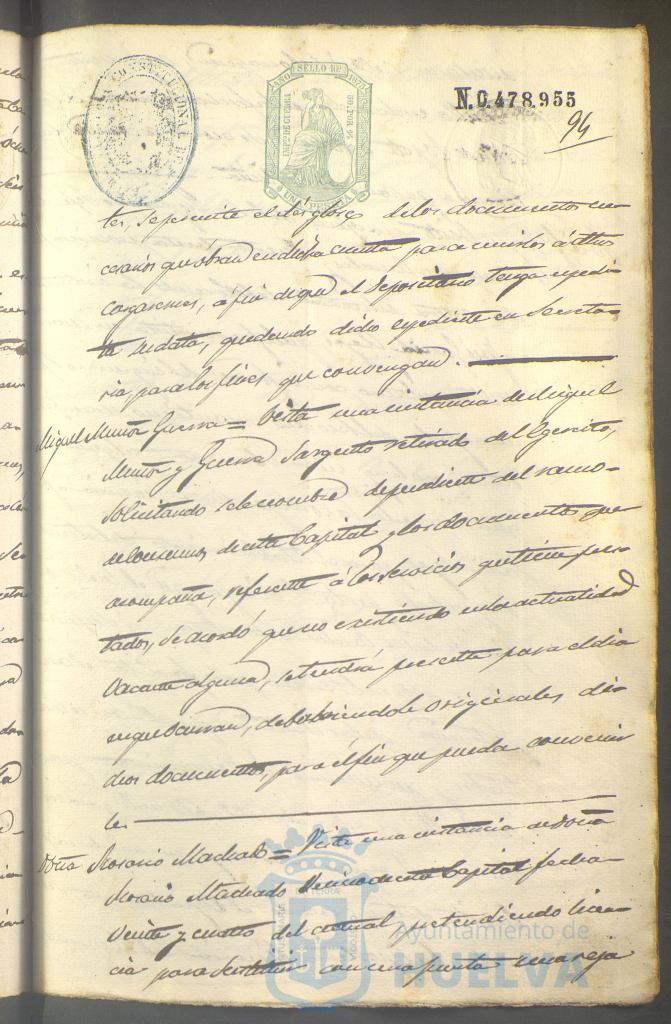 AÑO SELLO 10º 1879
IMPTO DE GUERRA
50 POR %
UNA PESETA
CONSTITUCIONAL
N.0.478.955
94
tes, se permite el desglose de los documentos ne-
cesarios que obran en dicha cuenta para unirlos á
cargaremes, á fin de que el Depositario tenga
ta su data, quedando dicho expediente en Secreta-
ria para los fines que convengan.
Miguel Muñoz Guerra = Vista una instancia de Miguel
Muñoz y Guerra Sargento retirado del Egercito,
solicitando se le nombre dependiente del ramo
de consumos de esta Capital y los documentos que
acompaña, referente á los servicios que tiene pres-
tados, se acordó que no existiendo en la actualidad
vacante alguna, se tendrá presente para el dia
en que ocurran, debolviendole originales di-
chos documentos, para el fin que pueda convenir
le.
Doña Rosario Machado = Vista una instancia de Doña
Rosario Machado vecina de esta Capital fecha
veinte y cuatro del actual pretendiendo licen-
cia para sustituir con una puerta una reja
Ayuntamiento de
HUELVA